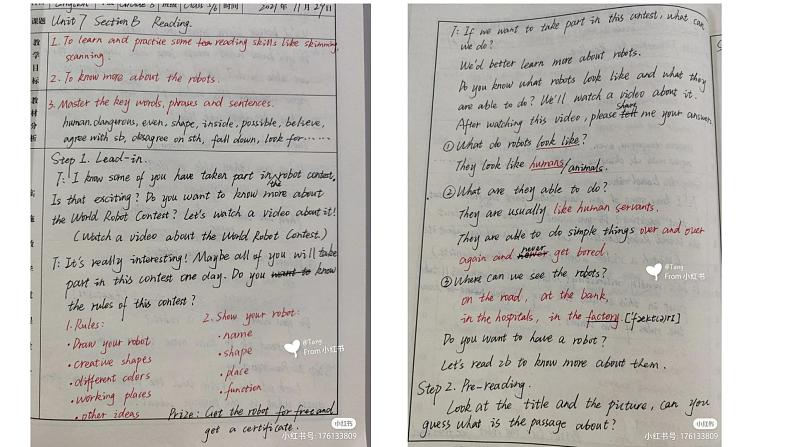 English
Class 5/6 时间
2021年 11月 29日
课题 Unit 7 Section B Reading.
教学目标
1. To learn and practise some reading skills like skimming,
scanning.
2. To know more about the robots.
教材分析
3. Master the key words, phrases and sentences.
human, dangerous, even, shape, inside, possible, believe,
agree with sb, disagree on sth, fall down, look for……
Step 1. Lead-in.
T: I know some of you have taken part in the robot contest.
Is that exciting? Do you want to know more about
the World Robot Contest? Let's watch a video about it!
(Watch a video about the World Robot Contest.)
T: It's really interesting! Maybe all of you will take
part in this contest one day. Do you want to know
the rules of this contest?
1. Rules:
• Draw your robot
• creative shapes
• different colors
• working places
• other ideas
2. Show your robot:
• name
• shape
• place
• function
Prize: Get the robot for free and
get a certificate.
@Tang
From 小红书
小红书
小红书号: 176133809
T: If we want to take part in this contest, what can
we do?
We'd better learn more about robots.
Do you know what robots look like and what they
are able to do? We'll watch a video about it.
After watching this video, please tell share me your answer.
① What do robots look like?
They look like humans/animals.
② What are they able to do?
They are usually like human servants.
They are able to do simple things over and over
again and never get bored.
③ Where can we see the robots?
on the road, at the bank,
in the hospitals, in the factory. ['fæktərɪ]
Do you want to have a robot?
Let's read 2b to know more about them.
Step 2. Pre-reading.
Look at the title and the picture, can you
guess what is the passage about?
@Tang
From 小红书
小红书
小红书号: 176133809